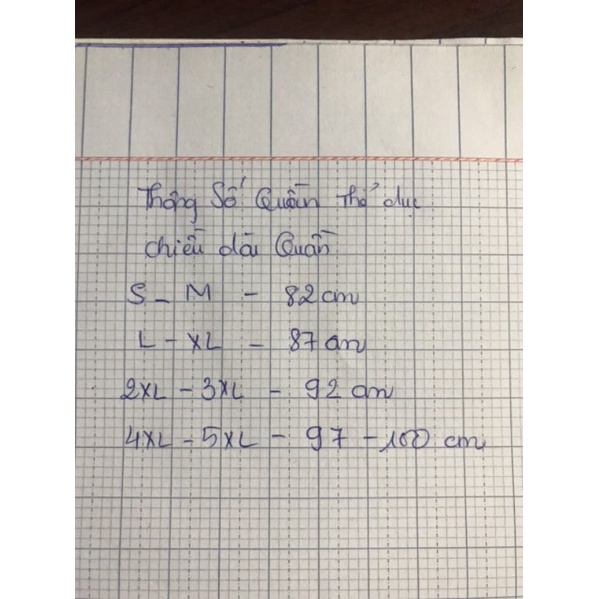 Thông Số Quần Thể dục
chiều dài Quần
S - M - 82 cm
L - XL - 87 cm
2XL - 3XL - 92 cm
4XL - 5XL - 97 - 100 cm